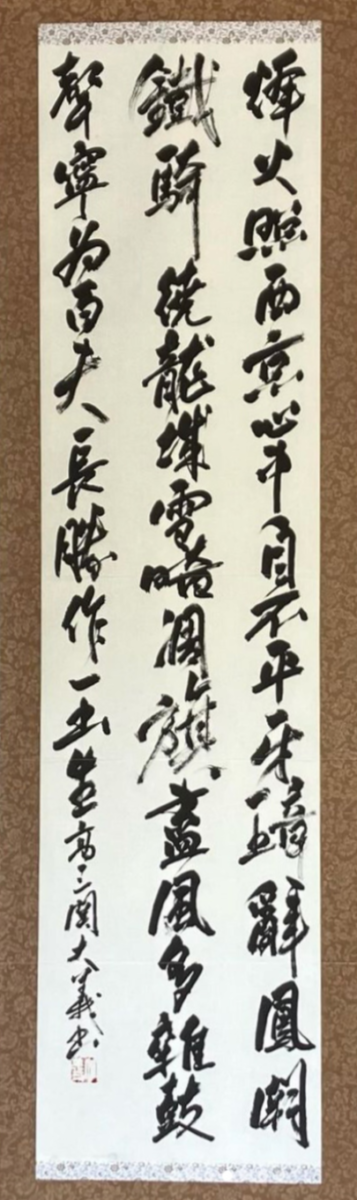 烽火照西京心中自不平牙璋辭鳳闕
鐵騎繞龍城雪暗凋旗畫風多雜鼓
聲寧為百夫長勝作一書生 高三関大義書